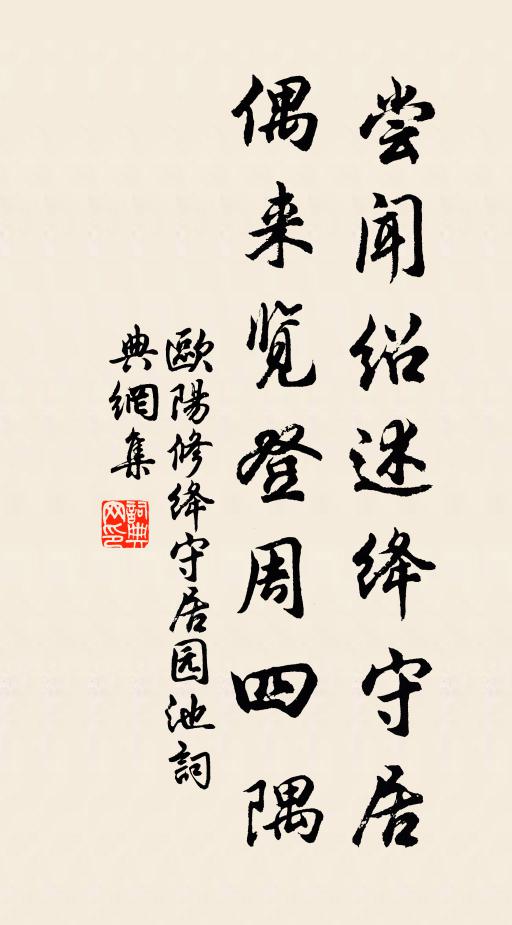 尝闻绍述绛守居
偶来览登周四隅
歐陽修绛守居园池詞
典網集
詞典网印